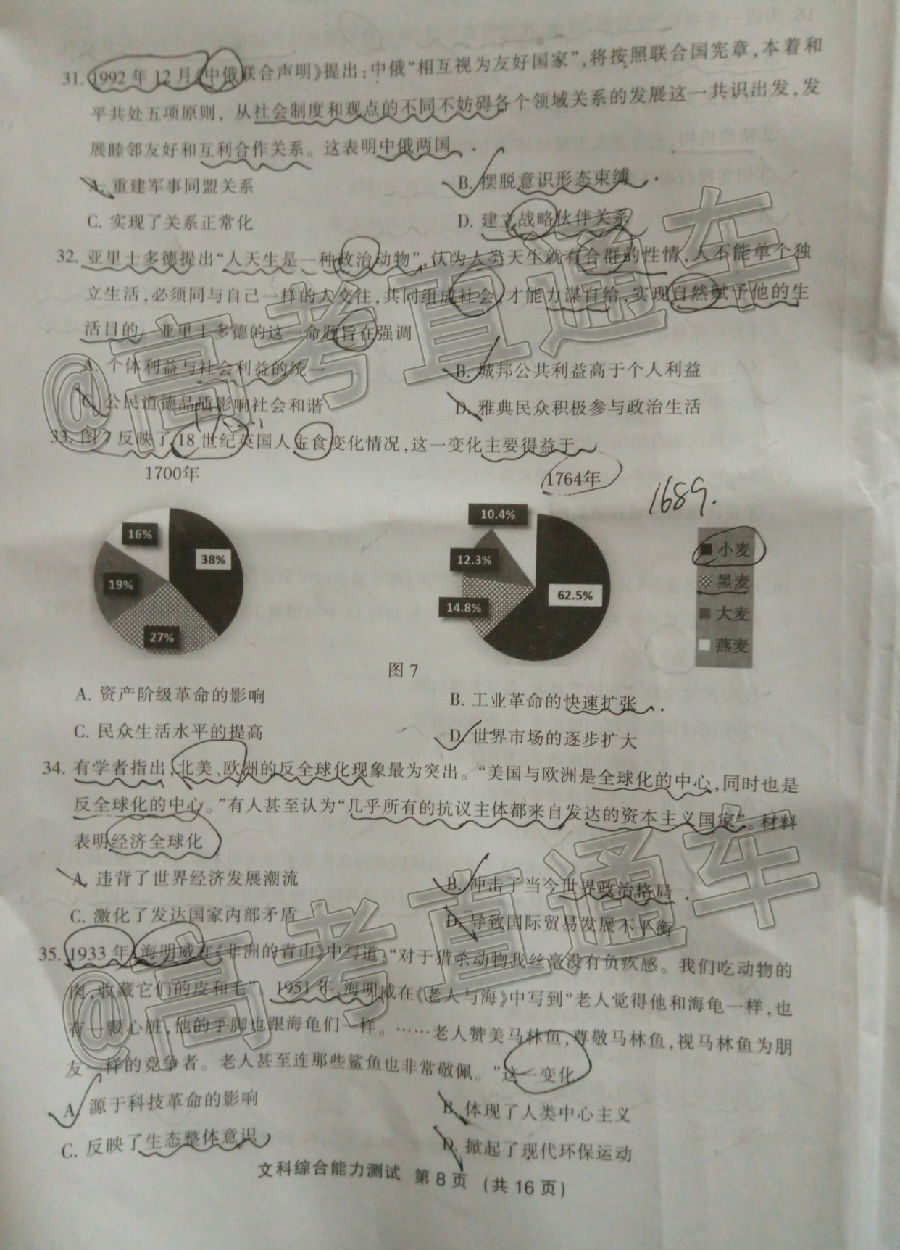 31. 1992年12月《中俄联合声明》提出:中俄“相互视为友好国家”,将按照联合国宪章,本着和
平共处五项原则，从社会制度和观点的不同不妨碍各个领域关系的发展这一共识出发，发
展睦邻友好和互利合作关系。这表明中俄两国
A. 重建军事同盟关系 B. 摆脱意识形态束缚
C. 实现了关系正常化 D. 建立战略伙伴关系
32. 亚里士多德提出“人天生是一种政治动物”,认为人类天生就有合群的性情,人不能单个独
立生活,必须同与自己一样的人交往,共同组成社会,才能力谋自给,实现自然赋予他的生
活目的。亚里士多德的这一命题旨在强调
A. 个体利益与社会利益的统一 B. 城邦公共利益高于个人利益
C. 公民道德品质影响社会和谐 D. 雅典民众积极参与政治生活
33. 图7反映了18世纪英国人主食变化情况,这一变化主要得益于
1700年 1764年 1689.
16% 38% 19% 27%
10.4% 12.3% 14.8% 62.5%
小麦
黑麦
大麦
燕麦
图7
A. 资产阶级革命的影响 B. 工业革命的快速扩张
C. 民众生活水平的提高 D. 世界市场的逐步扩大
34. 有学者指出,北美、欧洲的反全球化现象最为突出。“美国与欧洲是全球化的中心,同时也是
反全球化的中心。”有人甚至认为“几乎所有的抗议主体都来自发达的资本主义国家”。材料
表明经济全球化
A. 违背了世界经济发展潮流 B. 冲击了当今世界政治格局
C. 激化了发达国家内部矛盾 D. 导致国际贸易发展不平衡
35. 1933年,海明威在《非洲的青山》中写道:“对于猎杀动物我丝毫没有负疚感。我们吃动物的
肉,收藏它们的皮和毛”。1951年,海明威在《老人与海》中写到“老人觉得他和海龟一样,也
有一颗心脏,他的手脚也跟海龟们一样。……老人赞美马林鱼,尊敬马林鱼,视马林鱼为朋
友一样的竞争者。老人甚至连那些鲨鱼也非常敬佩。”这一变化
A. 源于科技革命的影响 B. 体现了人类中心主义
C. 反映了生态整体意识 D. 掀起了现代环保运动
文科综合能力测试 第8页 (共16页)
@高考直通车
@高考直通车